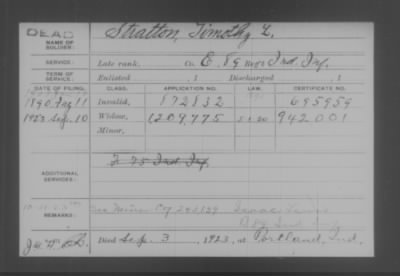 DEAD
NAME OF SOLDIER: Stratton, Timothy L.
SERVICE: Late rank, Co. E, 89 Reg't Ind. Inf.
TERM OF SERVICE: Enlisted , 1 Discharged , 1
DATE OF FILING. CLASS. APPLICATION NO. LAW. CERTIFICATE NO.
1890 Aug 11 Invalid, 872832 695959
1923 Sep. 10 Widow, 1209,775 942001
Minor,
ADDITIONAL SERVICES: F 75 Ind Inf.
REMARKS:
Died Sep. 3, 1923, at Portland, Ind.